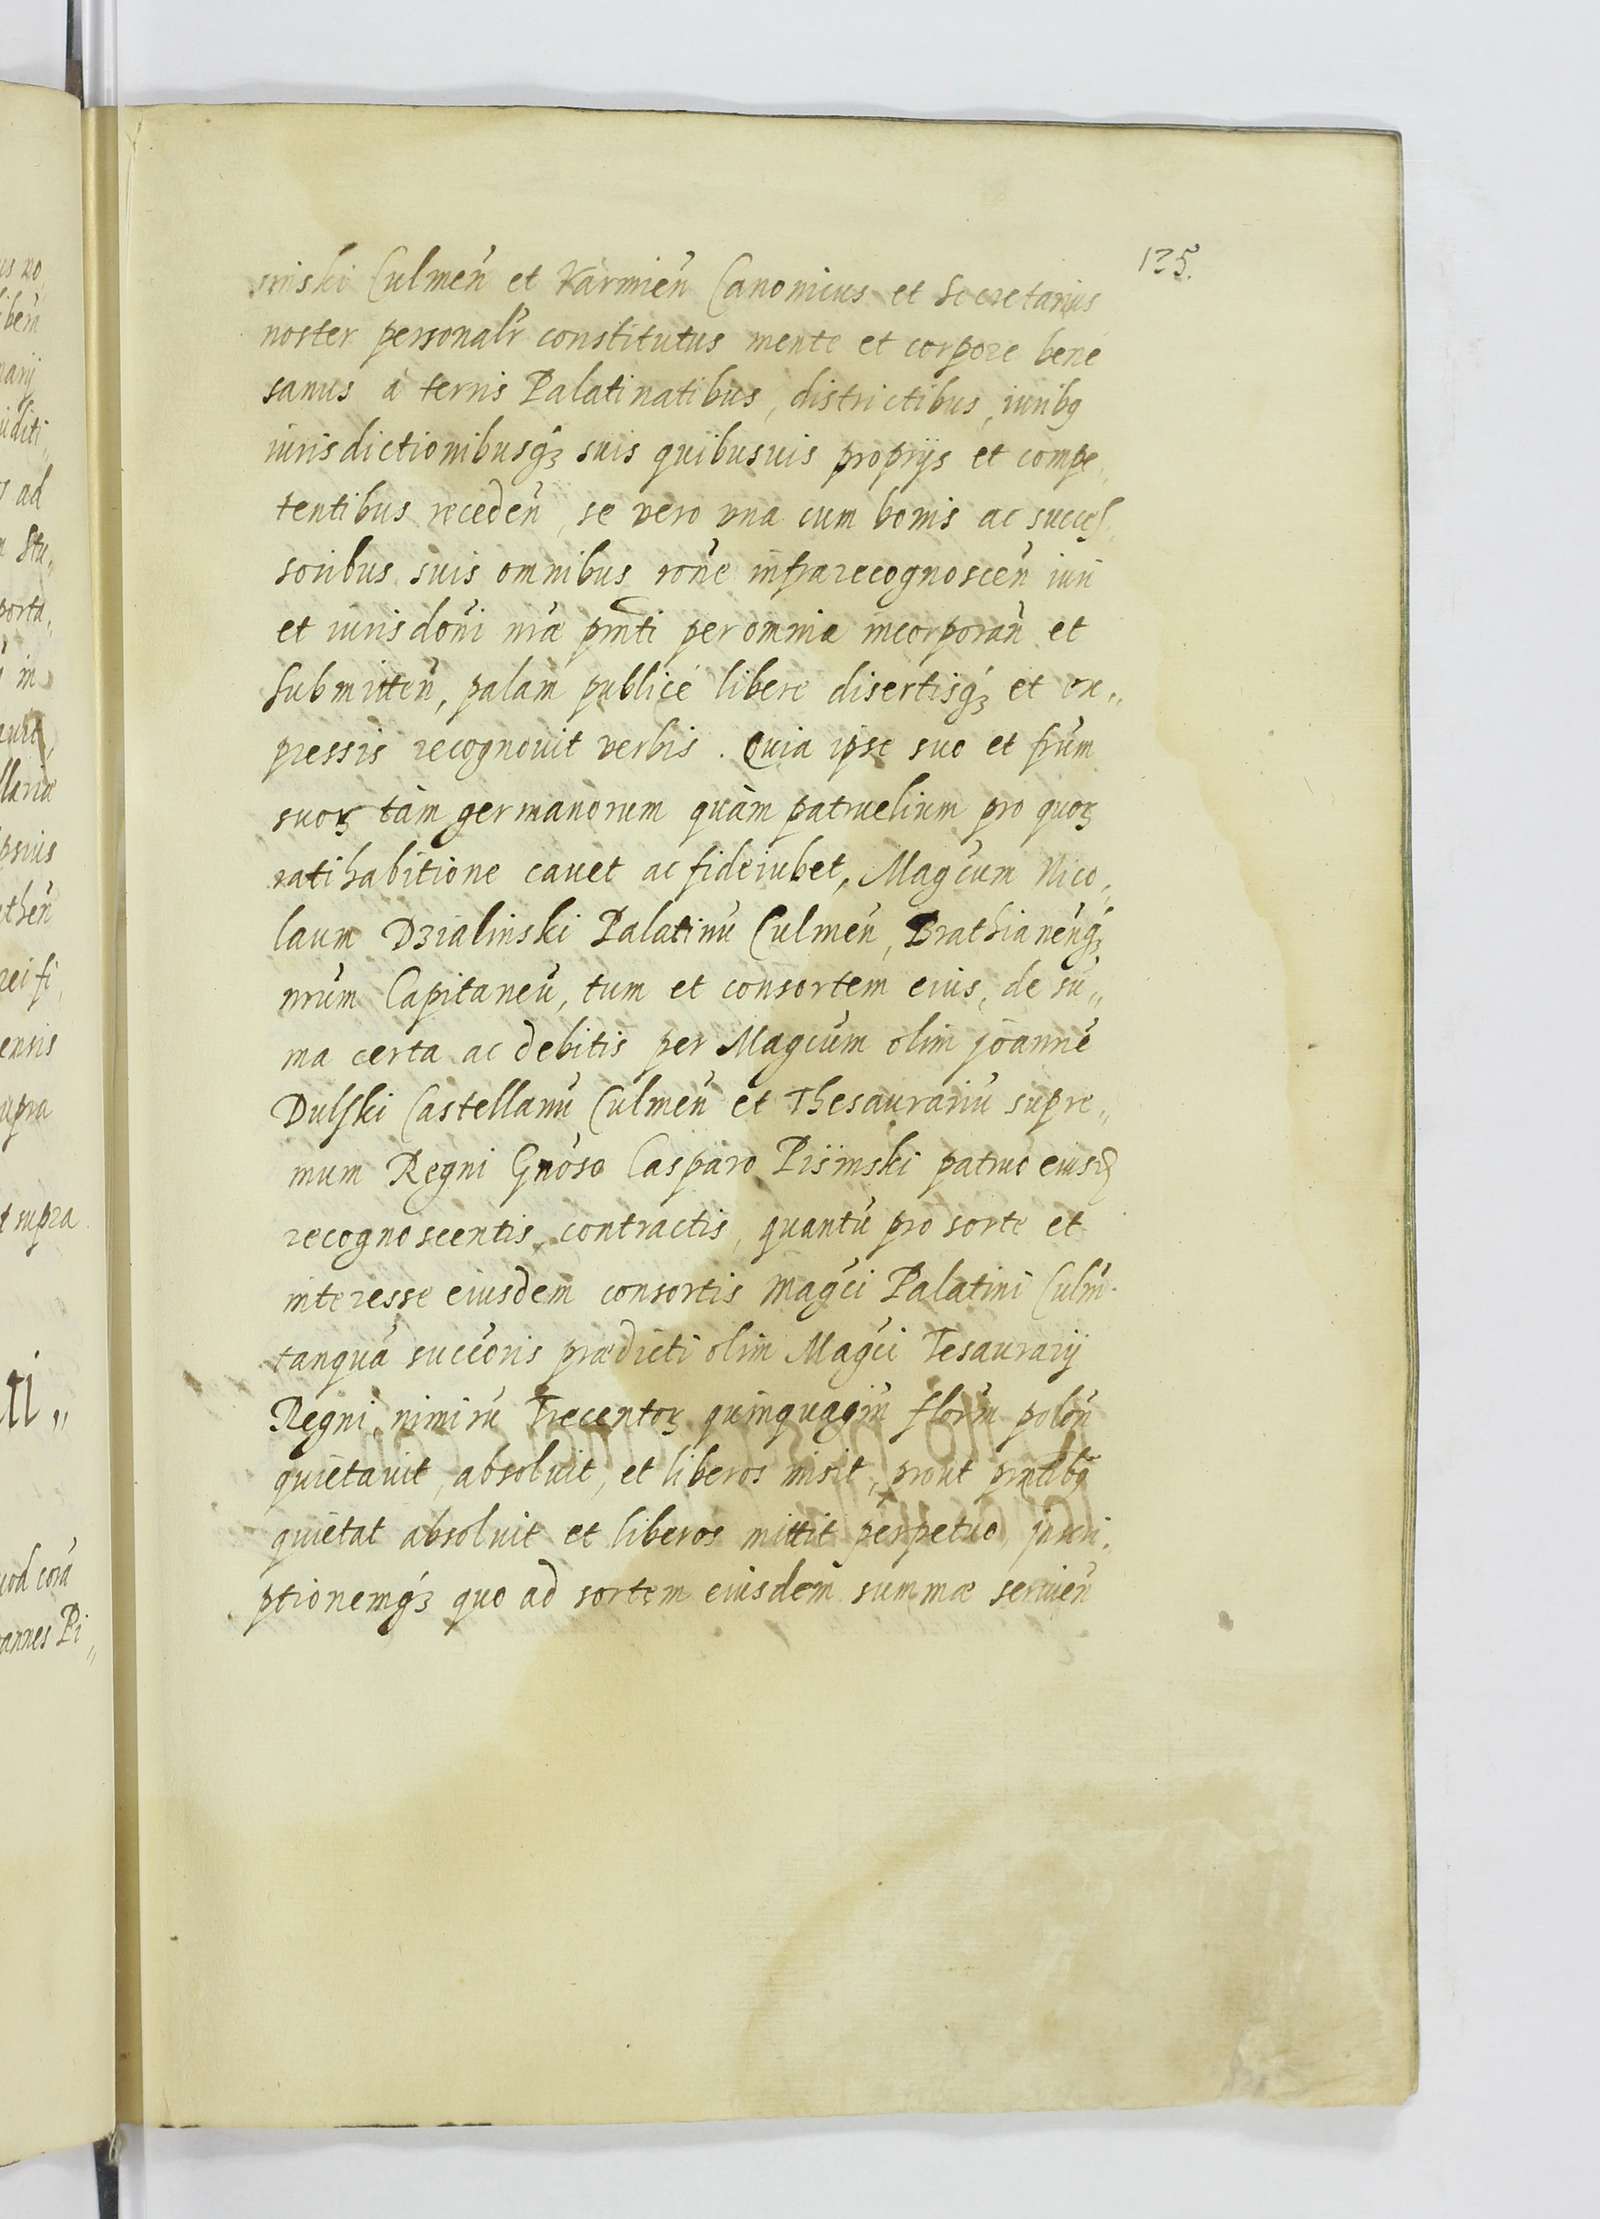 125.
sinski Culmeñ et Varmieñ Canonicus et Secretarius
noster personalr̃ constitutus mente et corpore bene
sanus à terris Palatinatibus, districtibus, iuribq
iurisdictionibusq́ꝫ suis quibusuis proprijs et compe„
tentibus recedeñ, se vero vna cum bonis ac succes„
soribus suis omnibus rõne infrarecognosceñ iuri
et iurisdoñi nr̃æ pñti per omnia incorporañ et
submitteñ, palàm publicè libere disertisq́ꝫ et ex„
pressis recognouit verbis. Quia ipse suo et fr̃um
suoꝝ tàm germanorum quàm patruelium pro quoꝝ
ratihabitione cauet ac fideiubet, Magc̃um Nico„
laum Dzialinski Palatinũ Culmeñ, Brathianeñq́ꝫ
nr̃um Capitaneũ, tum et consortem eius, de sũ„
ma certa ac debitis per Magc̃um olim Joannẽ
Dulski Castellanũ Culmeñ et Thesaurariũ supre„
mum Regni Gñoso Casparo Pisinski patruo eiusd
recognoscentis contractis, quantũ pro sorte et
interesse eiusdem consortis Magc̃i Palatini Culm̃.
tanquã succoris prædicti olim Magc̃i Tesaurarij
Regni, nimirũ Trecentoꝝ quinquagin̄ florin̄ poloñ
quietauit, absoluit, et liberos misit, prout pñtibq
quietat absoluit et liberos mittit perpetuo, inscri„
ptionemq́ꝫ quo ad sortem eiusdem summæ seruieñ